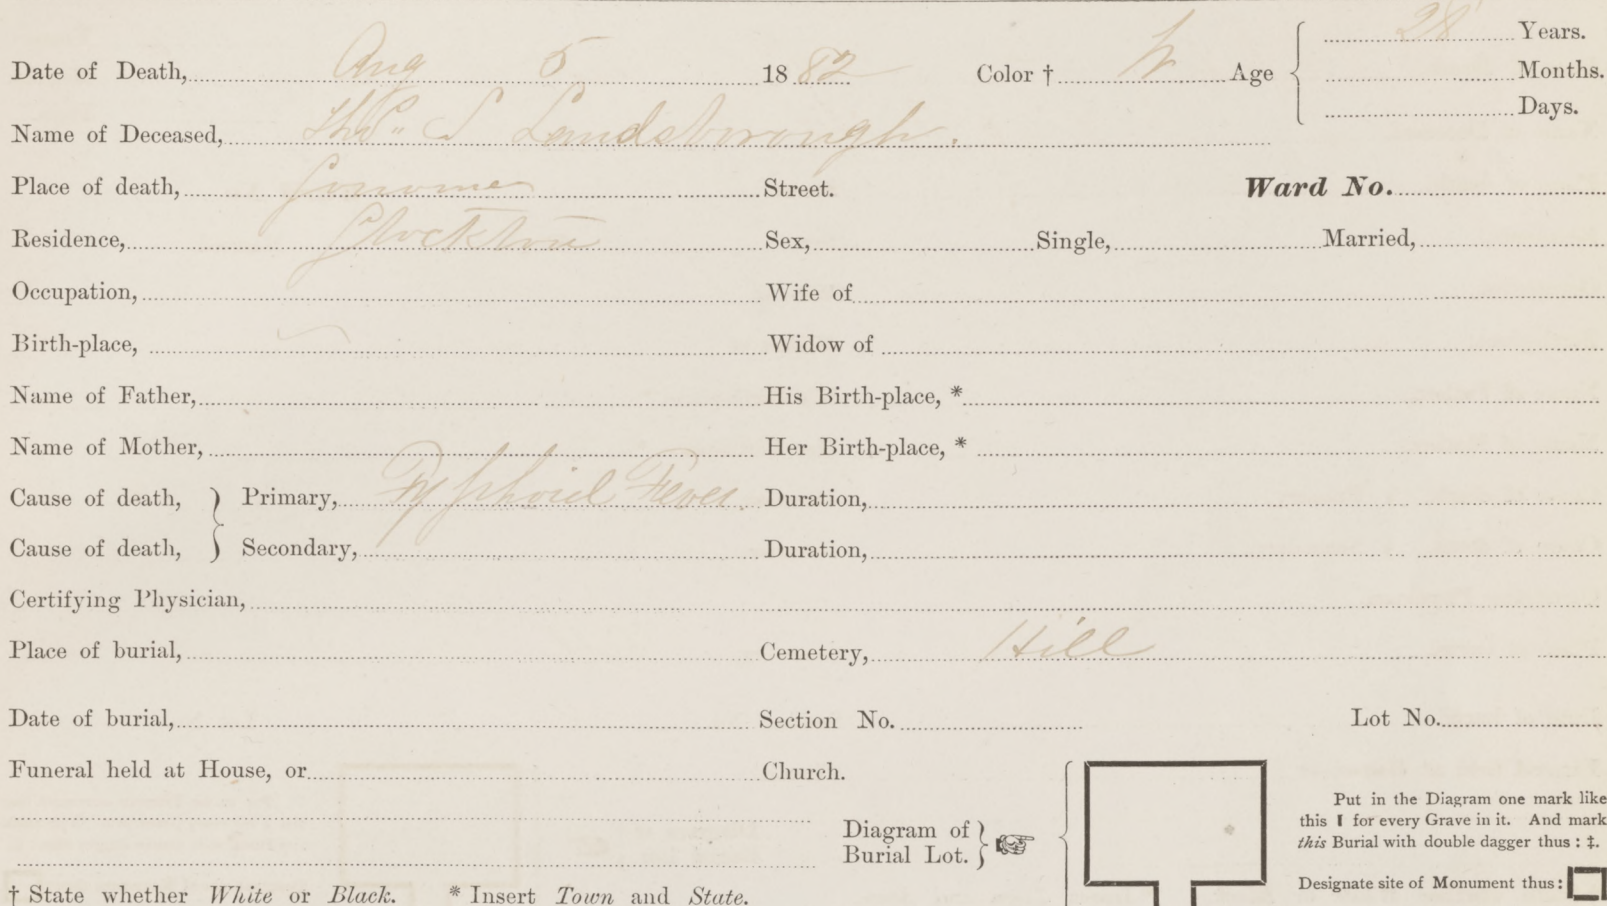 28 Years.
Date of Death, Aug 5 1882 Color † W Age Months.
Days.
Name of Deceased, Thos S Landsborough.
Place of death, Street. Ward No.
Residence, Stockton Sex, Single, Married,
Occupation, Wife of
Birth-place, Widow of
Name of Father, His Birth-place, *
Name of Mother, Her Birth-place, *
Cause of death, } Primary, Typhoid Fever. Duration,
Cause of death, } Secondary, Duration,
Certifying Physician,
Place of burial, Cemetery, Hill
Date of burial, Section No. Lot No.
Funeral held at House, or Church.
Put in the Diagram one mark like
this I for every Grave in it. And mark
this Burial with double dagger thus : ‡.
Diagram of
Burial Lot. }
Designate site of Monument thus:
† State whether White or Black. * Insert Town and State.